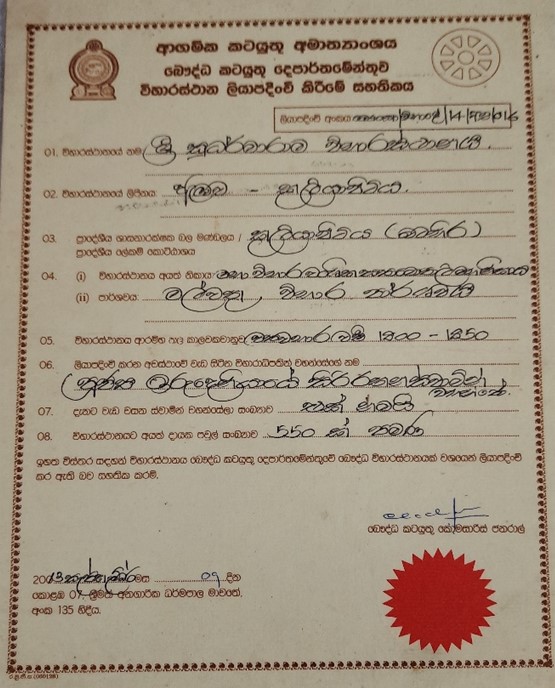 ආගමික කටයුතු අමාත්‍යාංශය
බෞද්ධ කටයුතු දෙපාර්තමේන්තුව
විහාරස්ථාන ලියාපදිංචි කිරීමේ සහතිකය
ලියාපදිංචි අංකය
01. විහාරස්ථානයේ නම ශ්‍රී සුධර්මාරාම විහාරස්ථානය.
02. විහාරස්ථානයේ ලිපිනය කුලියාපිටිය.
03. ප්‍රාදේශීය ශාසනාරක්ෂක බල මණ්ඩලය / කුලියාපිටිය
ප්‍රාදේශීය ලේකම් කොට්ඨාශය
04. (i) විහාරස්ථානය අයත් නිකාය
(ii) පාර්ශවය මල්වතු විහාර පාර්ශවය
05. විහාරස්ථානය ආරම්භ කල කාලවකවානුව 1200 - 1250
06. ලියාපදිංචි කරන අවස්ථාවේ වැඩ සිටින විහාරාධිපතීන් වහන්සේගේ නම
පූජ්‍ය
07. දැනට වැඩ වසන ස්වාමීන් වහන්සේලා සංඛ්‍යාව එක් නමයි
08. විහාරස්ථානයට අයත් දායක පවුල් සංඛ්‍යාව 550 ක් පමණ
ඉහත විස්තර සඳහන් විහාරස්ථානය බෞද්ධ කටයුතු දෙපාර්තමේන්තුවේ බෞද්ධ විහාරස්ථානයක් වශයෙන් ලියාපදිංචි
කර ඇති බව සහතික කරමි.
බෞද්ධ කටයුතු කොමසාරිස් ජනරාල්
මස 09 දින
කොළඹ 07, ශ්‍රීමත් අනගාරික ධර්මපාල මාවතේ,
අංක 135 හිදීය.